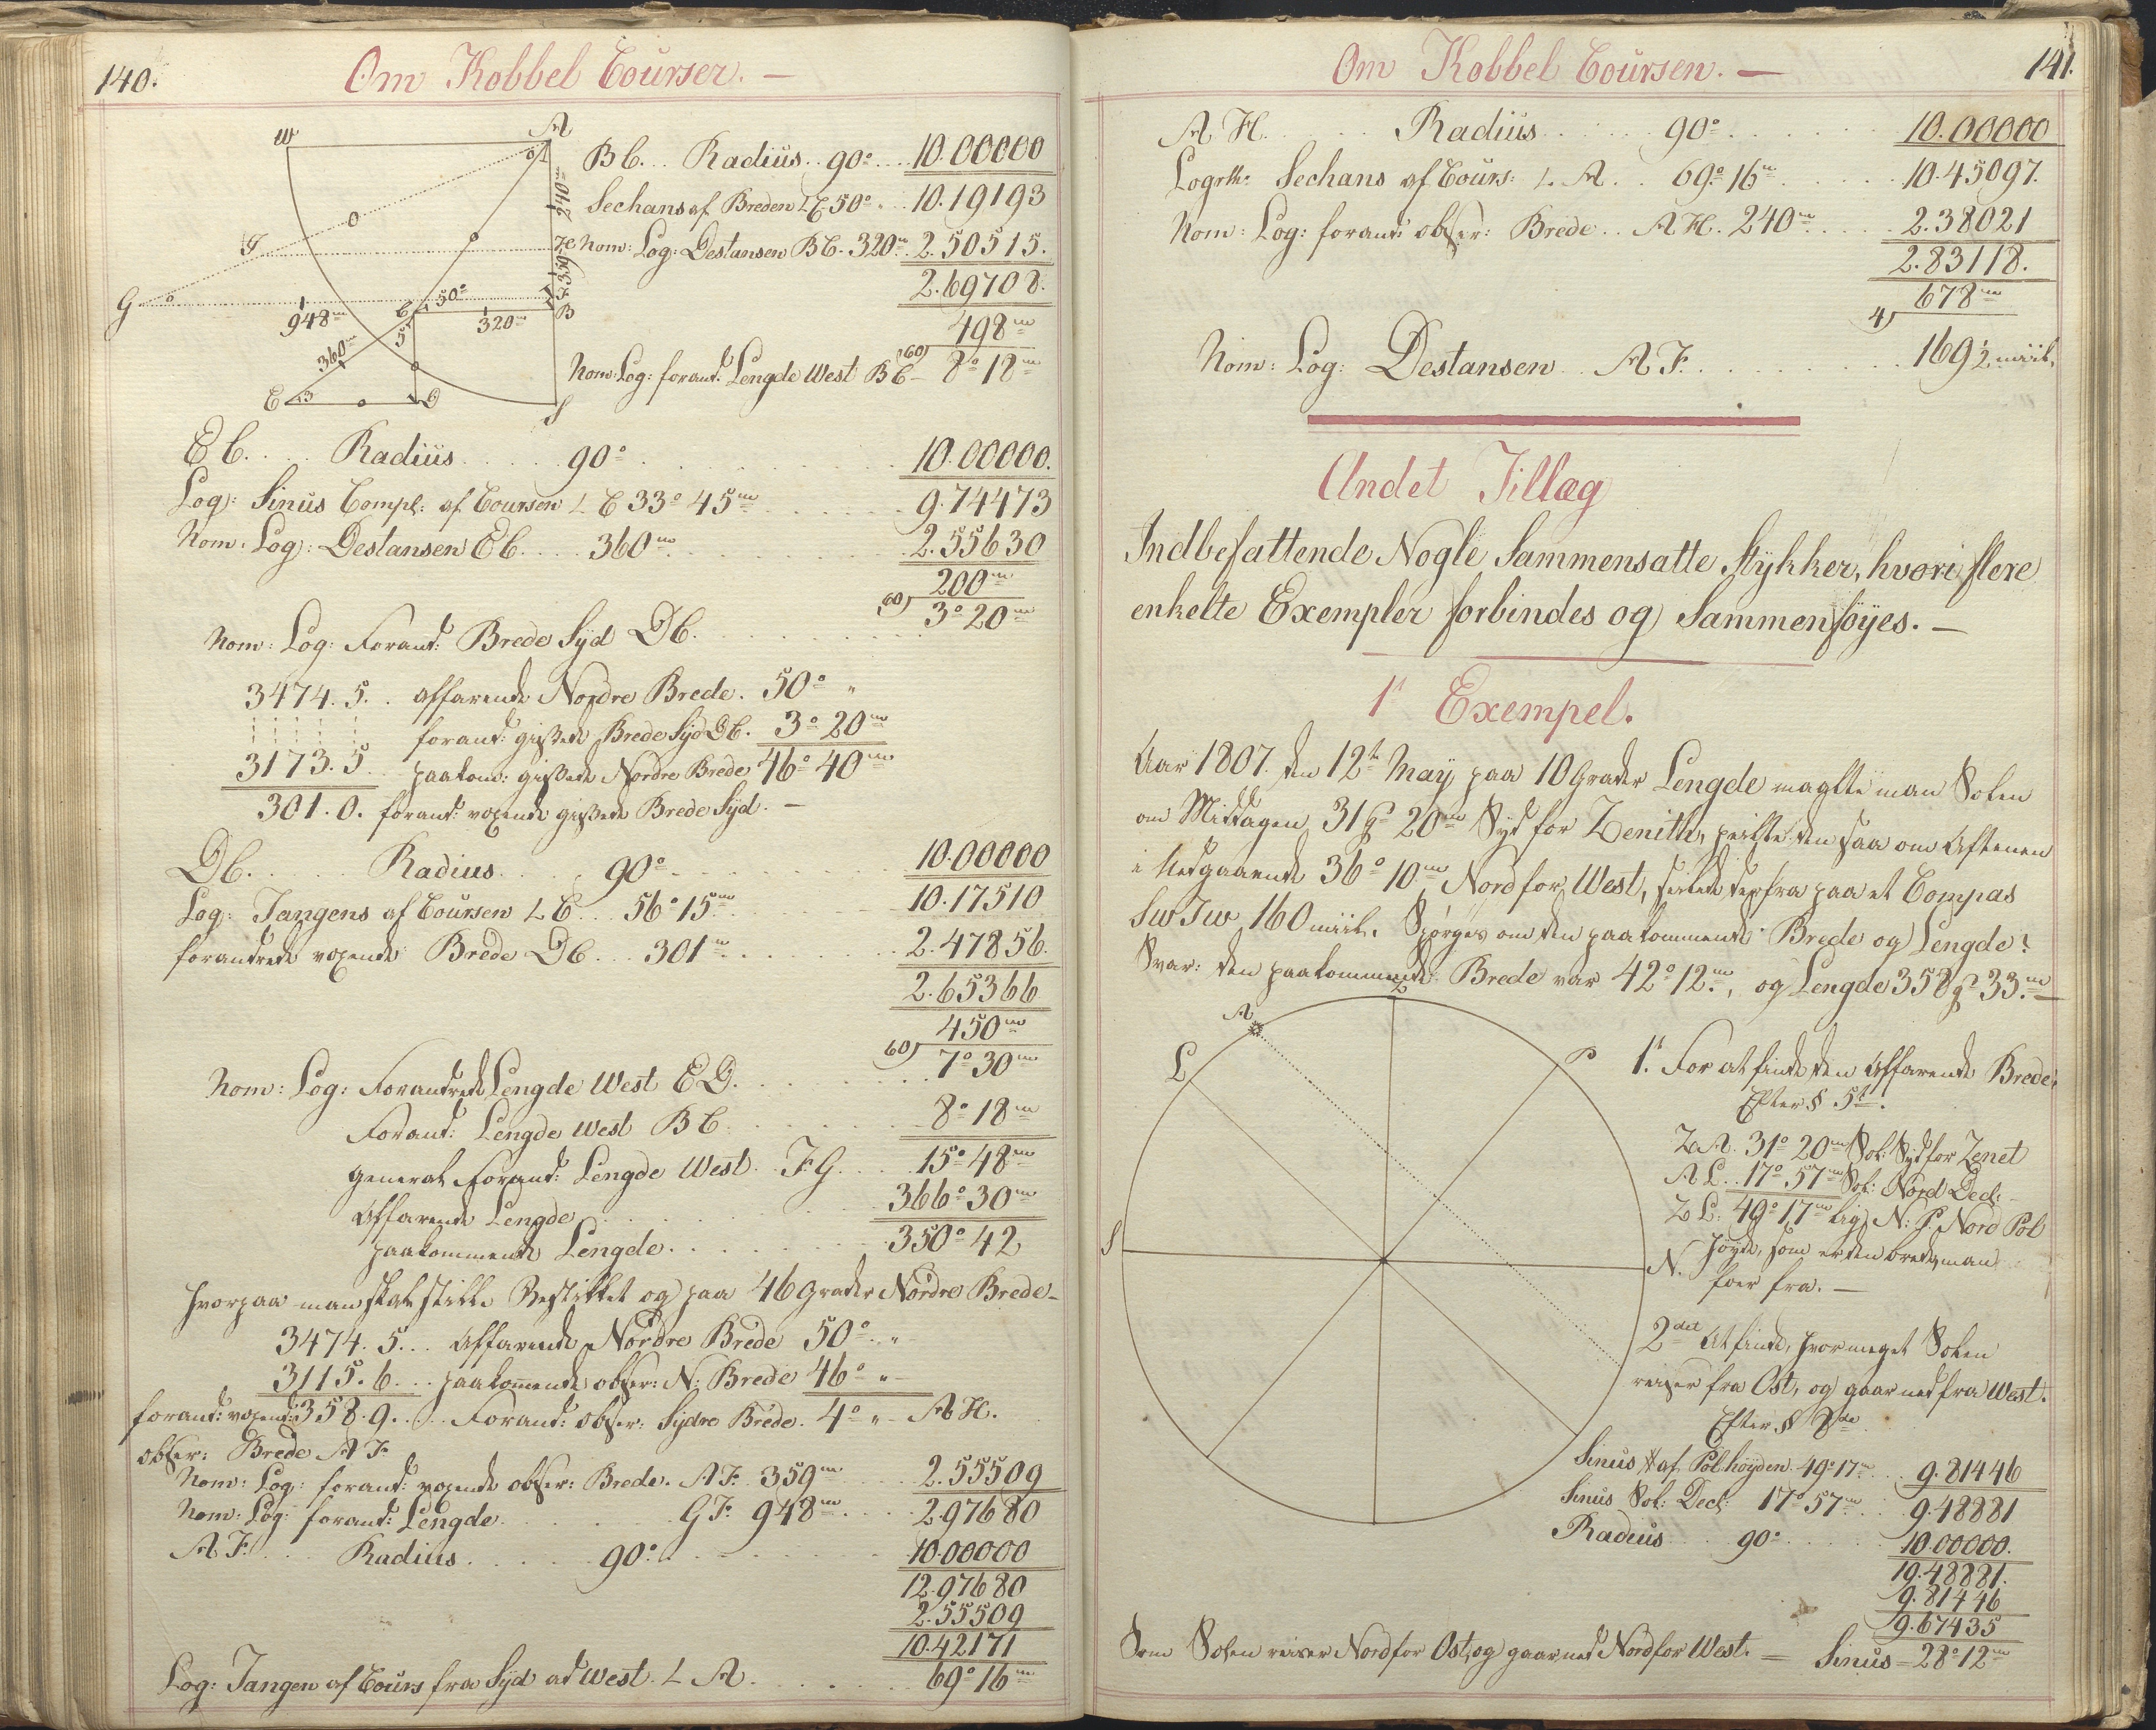 140.
Om Kobbel Courser. —
W
A
240m
O
O
J
H
359m
G
O
948m
C
50°
320m
F
B
5
360m
O
E
3
O
D
S
B C. . . Radius . . 90° . . . 10.00000
Sechans af Breden L C 50° . . . 10.19193
Nom: Log: Destansen B C. 320m 2.50515.
2.69708.
498m
60)
Nom: Log: forand: Lengde West B C — 8° 18m
E C. . . . Radiüs . . . . . 90° . . . . . . . 10.00000.
Log: Sinus Compl: af Coursen L C 33° 45m . . . . . 9.74473
Nom: Log: Destansen E C. . . . 360m . . . . . . 2.55630
200m
60)
3° 20m
Nom: Log: Forand: Brede Syd D C.
3474. 5. . affarende Nordre Brede. 50° "
forand: gissede Brede Syd D C. 3° 20m
3173. 5 . paakom: gissede Nordre Brede 46° 40m
301. 0. forand: voxende gissede Brede Syd. —
D C. . . . . Radius . . . . 90° . . . . . . 10.00000
Log: Tangens af Coursen L C . . . 56° 15m . . . . 10.17510
forandrede voxende Brede D C . . . 301m . . . . . . 2.47856.
2.65366
450m
60)
7° 30m
Nom: Log: Forandrede Lengde West E D.
Forand: Lengde West B C . . . . . . 8° 18m
general Forand: Lengde West . F G. . . . 15° 48m
Affarende Lengde . . . . . . . . 366° 30m
paakommende Lengde . . . . . . . 350° 42
hvorpaa man skal stikke Bestikket og paa 46 Grader Nordre Brede —
3474. 5. . . Affarende Nordre Brede 50° . "
3115. 6. . . paakommende obser: N: Brede 46° " —
forand: voxende 358. 9. . . . Forand: obser: Sydre Brede. 4° " — A H.
obser: Brede A F
Nom: Log: forand: voxende obser: Brede. A F. 359m . . . 2.55509
Nom: Log: forand: Lengde . . . . . G F. 948m . . . . 2.97680
A F. . . . Radius . . . . . 90° . . . . . . . 10.00000
12.97680
2.55509
10.42171
Log: Tangen af Cours fra Syd ad West. L A . . . . . . 69° 16m
141.
Om Kobbel Coursen. —
A H. . . . Radiüs . . . . . 90° . . . . . . 10.00000
Logrth: Sechans af Cours: L. A . . 69° 16m . . . . . 10.45097.
Nom: Log: forand: obser: Brede . . A H. 240m . . . . . 2.38021
2.83118.
678m
4)
Nom: Log: Destansen . . A F. . . . . . . . . 169½ miil.
Andet Tillæg
Indbefattende Nogle Sammensatte Stykker, hvori flere
enkelte Exempler forbindes og Sammenföyes. —
1t Exempel.
Aar 1807. den 12te May paa 10 Grader Lengde maalte man Solen
om Middagen 31 gr 20m Syd for Zenith, peilte den saa om Aftenen
i Nedgaaende 36° 10m Nord for West, seilede derfra paa et Compas
SW T W 160 miil. Spörges om den paakommende Brede og Lengde?
Svar: den paakommende Brede var 42° 12m, og Lengde 358 gr 33m —
Z
A
L
P
S
N.
1t For at finde den Affarende Brede.
Efter § 5te.
Z A. 31° 20m Sol: Syd for Zenet
A L . . 17° 57m Sol: Nord Decl: —
Z L: 49° 17m lig N: P. Nord Pol
höyde, som er den brede, man
foer fra. —
2det At finde, hvormeget Solen
reiser fra Ost, og gaar ned fra West.
Efter § 8de
Sinus af Pol höyden 49° 17m . . 9.81446
Sinus Sol: Decl: 17° 57m . . . 9.48881
Radius . . . 90° . . . . . 10.00000.
19.48881.
9.81446
9.67435
Som Solen reiser Nord for Ost, og gaar ned Nord for West. — Sinus — 28° 12m